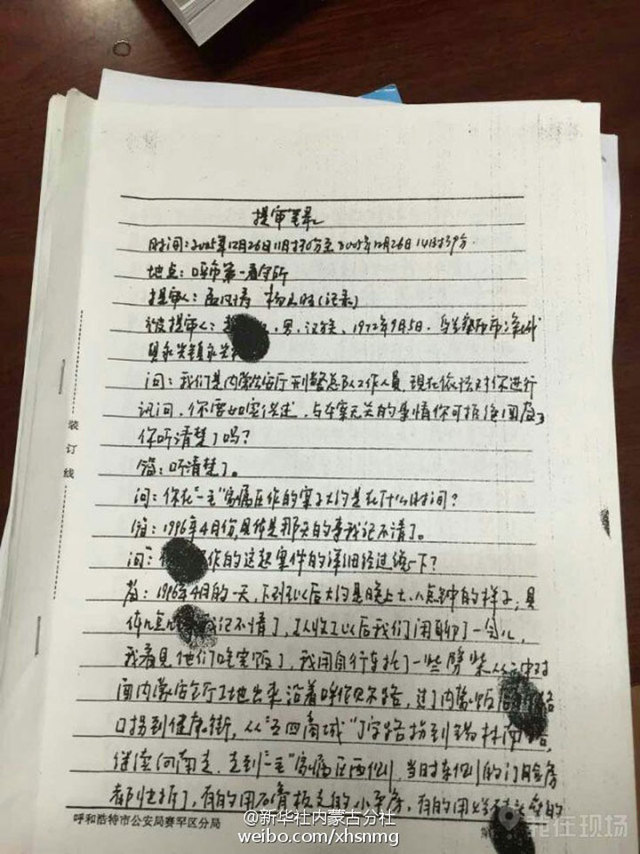 提审笔录
时间：2005年12月26日11时30分至2005年12月26日14时39分
地点：呼市第一看守所
提审人：孟 （记录）
被提审人：赵 ，男，汉族，1972年9月5日，乌兰察布市凉城
县永兴镇永兴
问：我们是内蒙公安厅刑警总队工作人员，现在依法对你进行
讯问，你需如实供述，与本案无关的事情你可拒绝回答，
你听清楚了吗？
答：听清楚了。
问：你在“一毛”家属区作的案子大约是在什么时间？
答：1996年4月份，具体是那天的事我记不清了。
问： 作的这起案件的详细经过说一下？
答：1996年4月的一天，下班以后大约是晚上七、八点钟的样子，具
体几点 我记不清了，从收工以后我们闲聊了一会儿，
我看见他们吃完饭了，我用自行车托了一些劈柴从 对
面内蒙 厅工地出来沿着呼伦贝尔路，过了内蒙饭店 路
口拐到健康街，从“五四商城”丁字路拐到锡林南路，
继续向南走，走到“一毛”家属区西侧，当时东侧的门脸房
都快拆了，有的用石膏板支的小平房，有的用 的
装订线
呼和浩特市公安局赛罕区分局
@新华社内蒙古分社
weibo.com/xhsnmg
我在现场